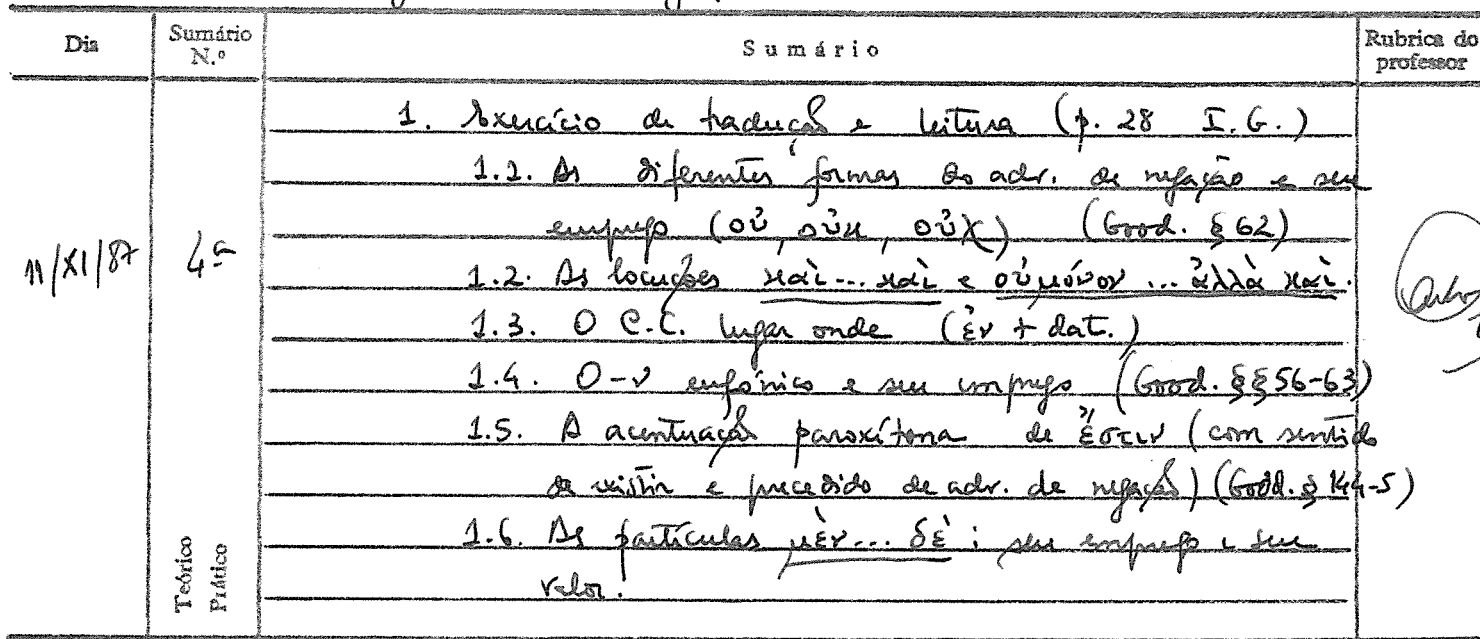 Dia Sumário N.º Sumário Rubrica do professor
1. Exercício de tradução e leitura (p. 28 I.G.)
1.1. As diferentes formas do adv. de negação e seu
emprego (οὐ, οὐκ, οὐχ) (Good. § 62)
11/XI/87 4ª
1.2. As locuções καὶ... καὶ e οὐ μόνον ... ἀλλὰ καὶ.
1.3. O C.C. lugar onde (ἐν + dat.)
1.4. O -ν eufónico e seu emprego (Good. §§ 56-63)
1.5. A acentuação paroxítona de ἔστιν (com sentido
de existir e precedido de adv. de negação) (Good. § 144-5)
1.6. As partículas μὲν... δὲ: seu emprego e seu
valor.
Teórico
Prático